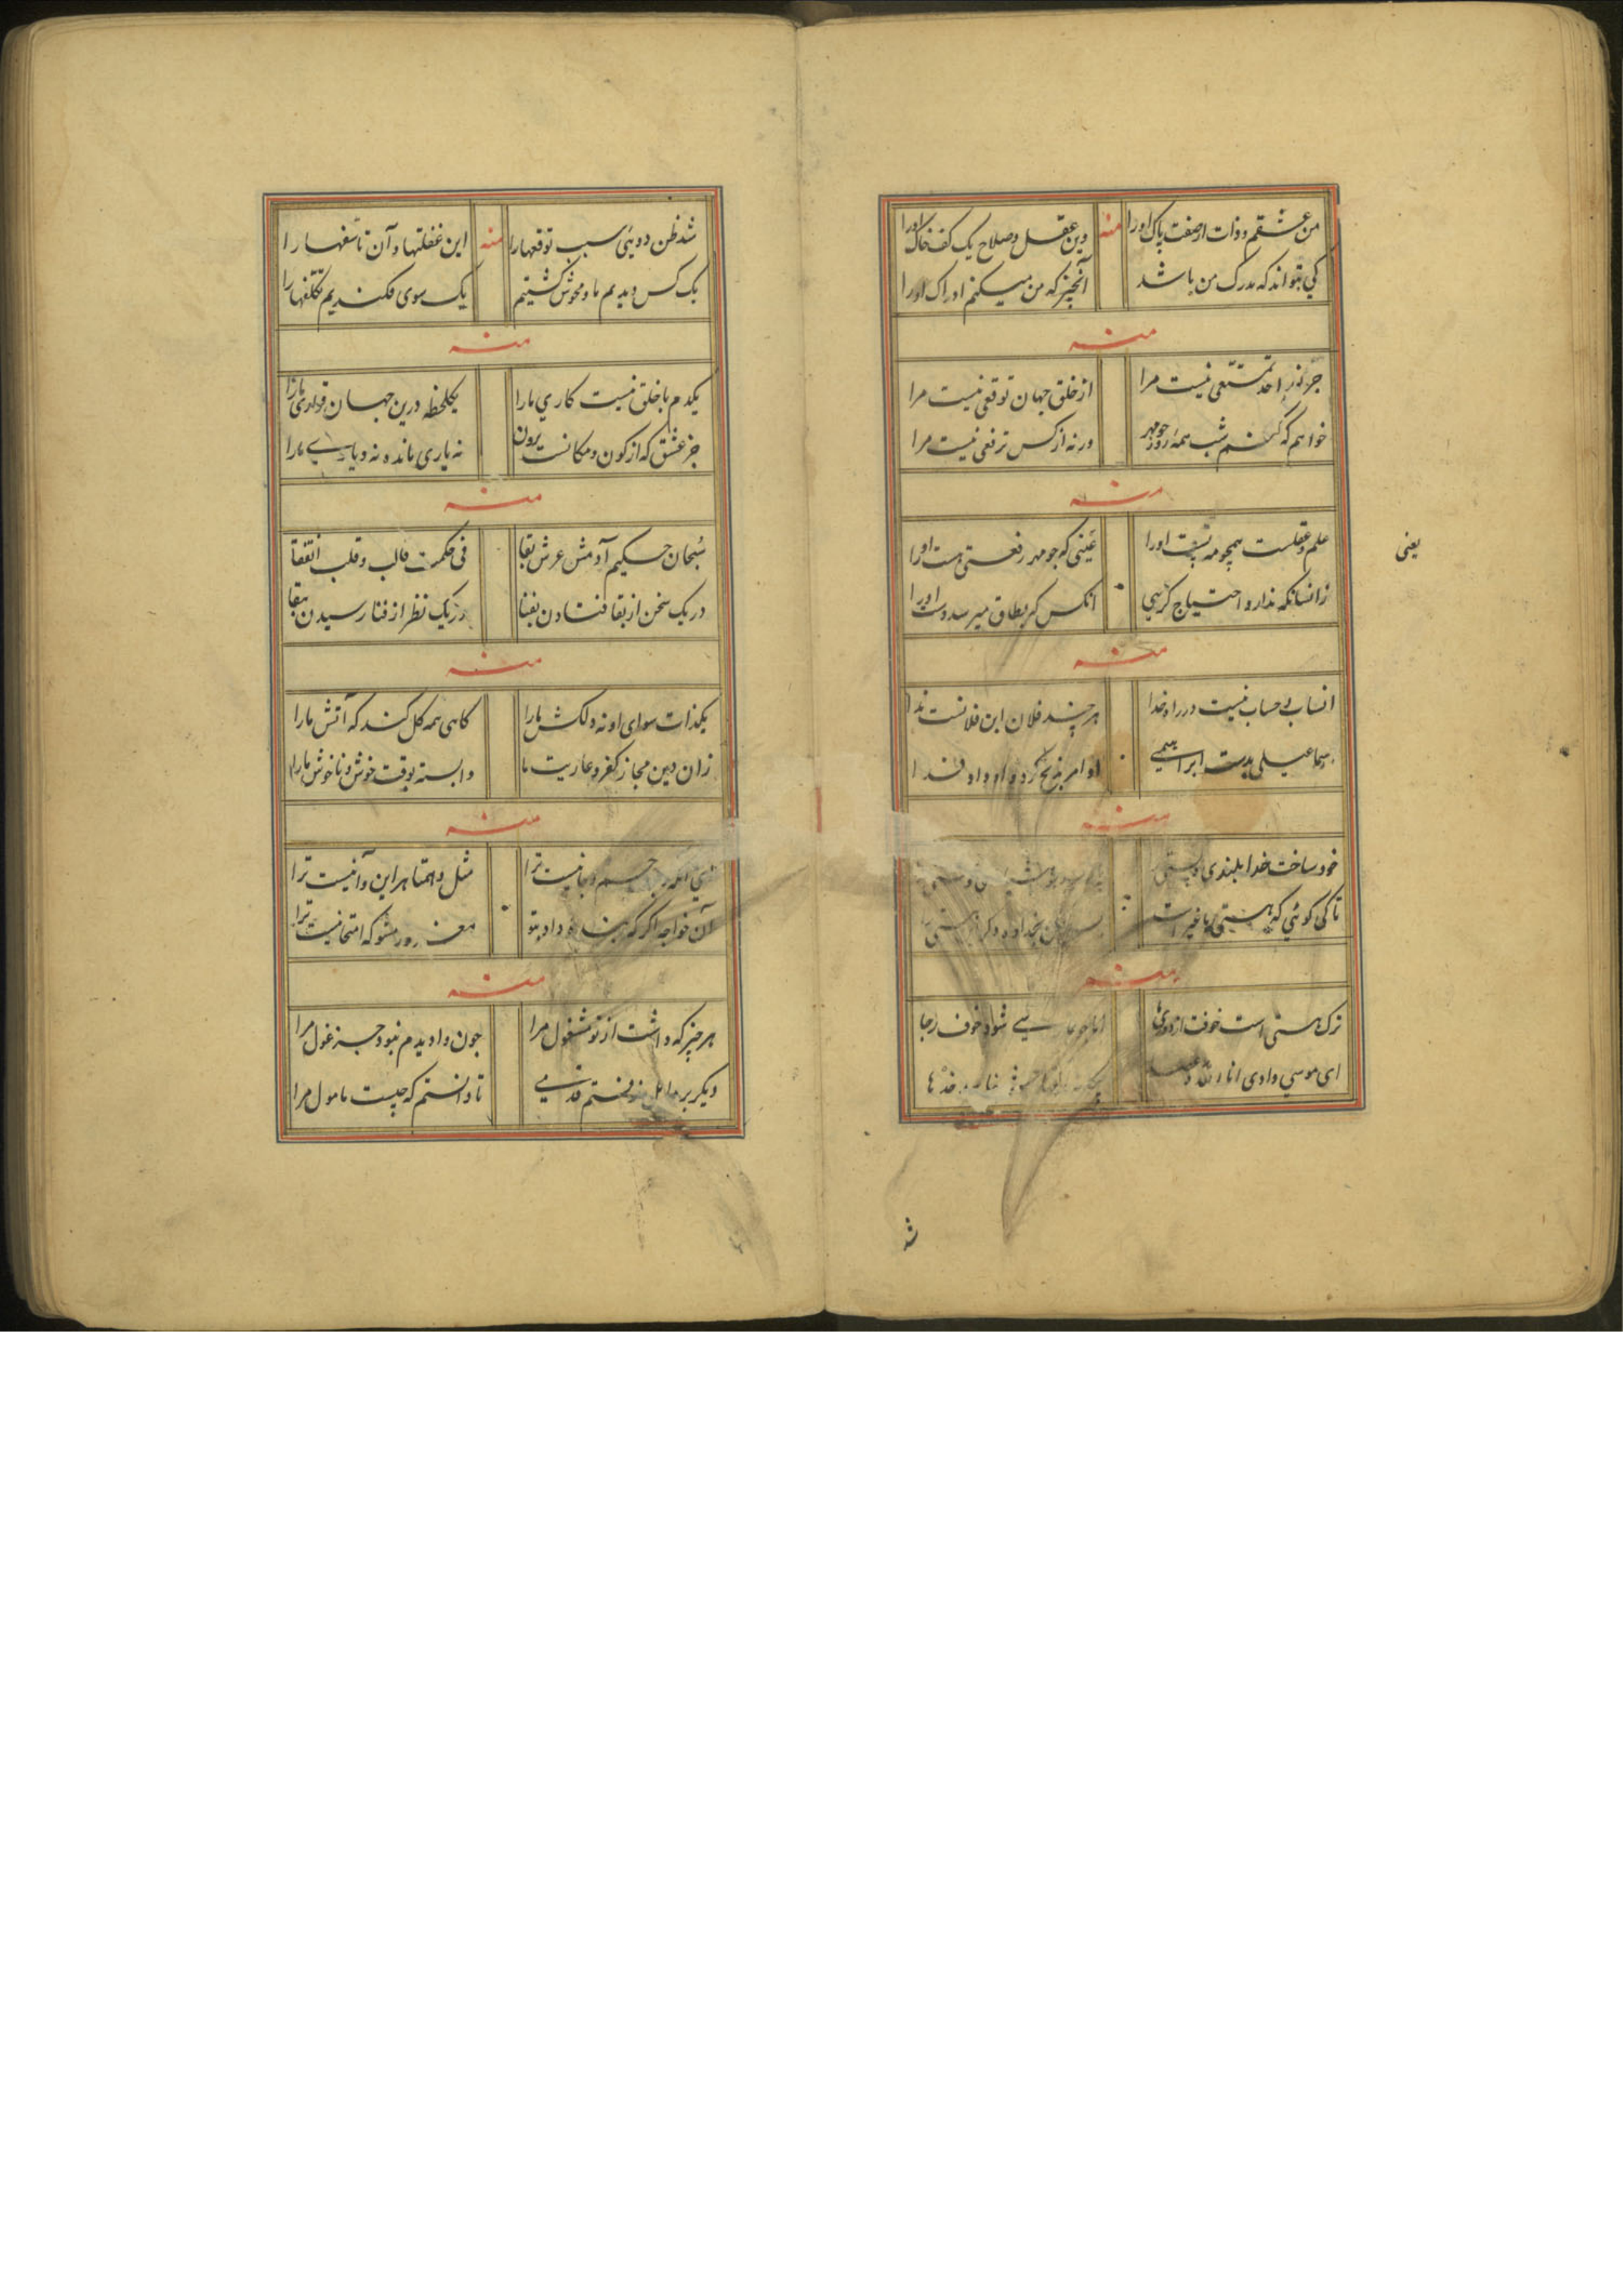 من عشقم و ذات از صفت پاک اورا منه وین عقل و صلاح یک کف خاک اورا
کی بتواند که مدرک من باشد آنچیز که من میکنم ادراک اورا
منه
جز نور احد تمتعی نیست مرا از خلق جهان توقعی نیست مرا
خواهم که کنم شب همه روز چو مهر ورنه از کس ترفعی نیست مرا
منه
علم و عقلست همچو مه اورا عینی که چو مهر رفعتی هست اورا
زانسانکه ندارد احتیاج کرسی آنکس که بطاق میرسد دست اورا
یعنی
منه
انساب بی حساب نیست در راه خدا هر چند فلان ابن فلانست ندا
اسماعیلی بدست ابراهیمی او امر بذبح کرد و او داد فدا
منه
خود ساخت خدا بلندی و پستی
تا کی گوئی که هستی با غیر است
منه
ترک هستی است خوفت از شود خوف رجا
ای موسی وادی انا الله
شد
شد ظن دوئی سبب توقعها را منه این غفلتها و آن تاسفها را
یک کس دیدیم ما و محوش گشتیم یک سوی فکندیم تکلفها را
منه
یکدم با خلق نیست کاری مارا یکلحظه درین جهان قراری مارا
جز عشق که از کون و مکانست برون نه یاری مانده نه دیاری مارا
منه
سبحان حکیم آدمش عرش بقا فی حکمت قالب و قلب اتفقا
در یک سخن از بقا فتادن بفنا در یک نظر از فنا رسیدن ببقا
منه
یکذات سوای او نه دلکش مارا گاهی همه گل کند که آتش مارا
زان دین مجاز کفر و عاریت ما وابسته بوقت خوش و ناخوش مارا
منه
جسم و جا نیست ترا مثل و همتا هر این و آنیست ترا
آن خواجه اگر که داد بتو مغرور مشو که امتحانیست ترا
منه
هر چیز که داشت از تو مشغول مرا چون وا دیدم نبود جز غول مرا
دیگر بر نرفتم قدمی تا دانستم که چیست مامول مرا